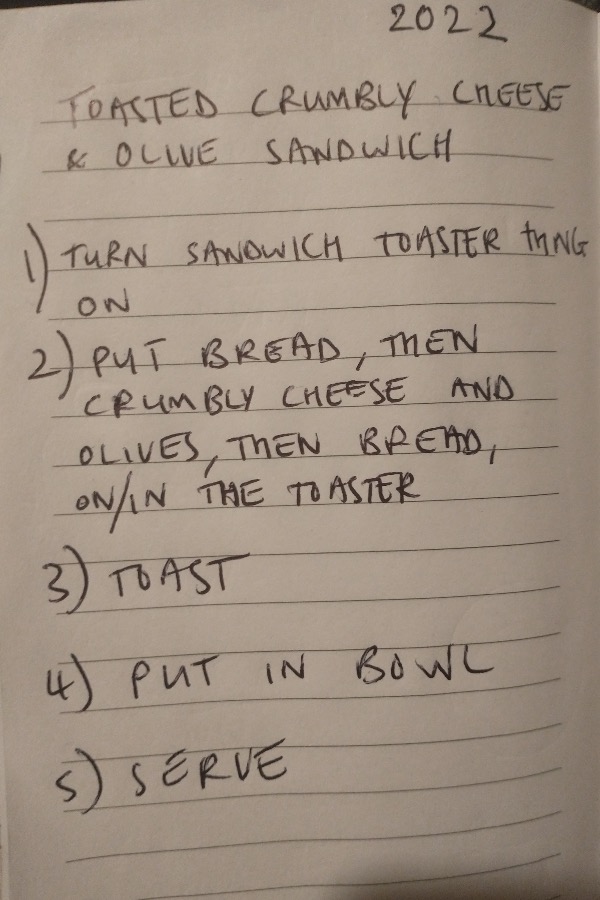 2022
TOASTED CRUMBLY CHEESE
& OLIVE SANDWICH
1) TURN SANDWICH TOASTER THING
ON
2) PUT BREAD, THEN
CRUMBLY CHEESE AND
OLIVES, THEN BREAD,
ON/IN THE TOASTER
3) TOAST
4) PUT IN BOWL
5) SERVE